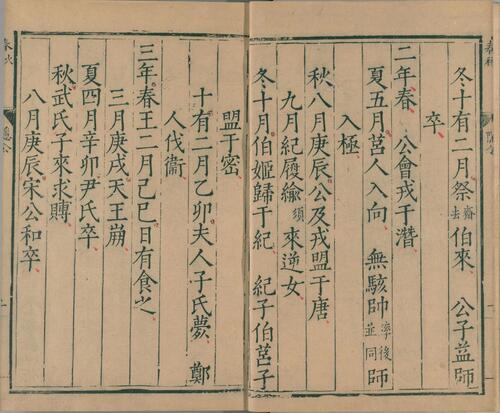 冬十有二月祭齋去伯來　公子益師
卒
二年春　公會戎于潛
夏五月莒人入向　無駭帥率後並同師
入極
秋八月庚辰公及戎盟于唐
九月紀履緰須來逆女
冬十月伯姬歸于紀　紀子伯莒子
盟于密
十有二月乙卯夫人子氏薨　鄭
人伐衞
三年春王二月己巳日有食之
三月庚戌天王崩
夏四月辛卯尹氏卒
秋武氏子來求賻
八月庚辰宋公和卒